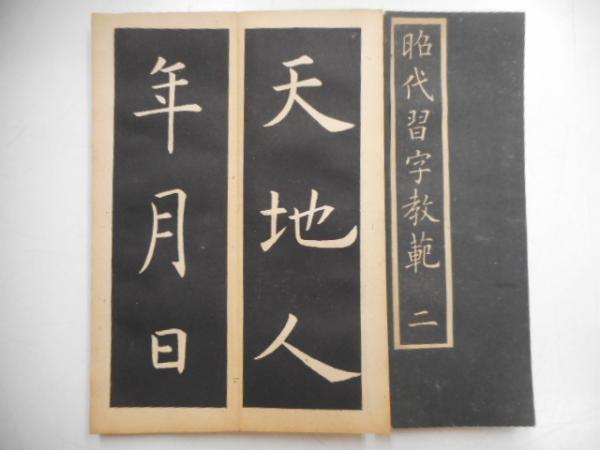 昭代習字教範 二
天地人
年月日